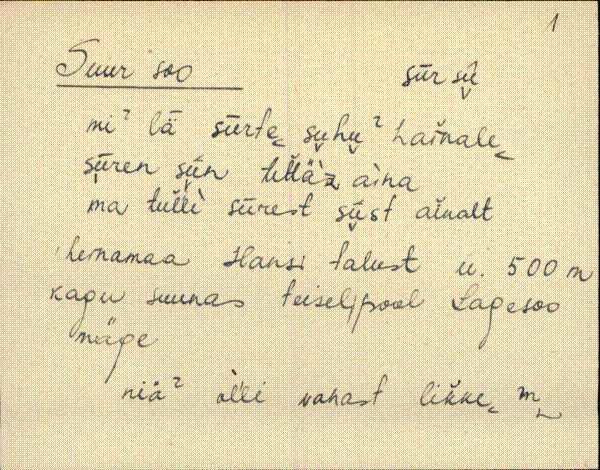 1
Suur soo sūr sū̬
mi² lä sūrte˱ su̬hu̬² hainale˱
sūren sū̬n tetläz aina
ma tulli sūrest sū̬st ainalt
heinamaa Hansi talust u. 500 m
kagu suunas teiselpool Lagesoo
mäge
niä² olli vahast likke˱ m